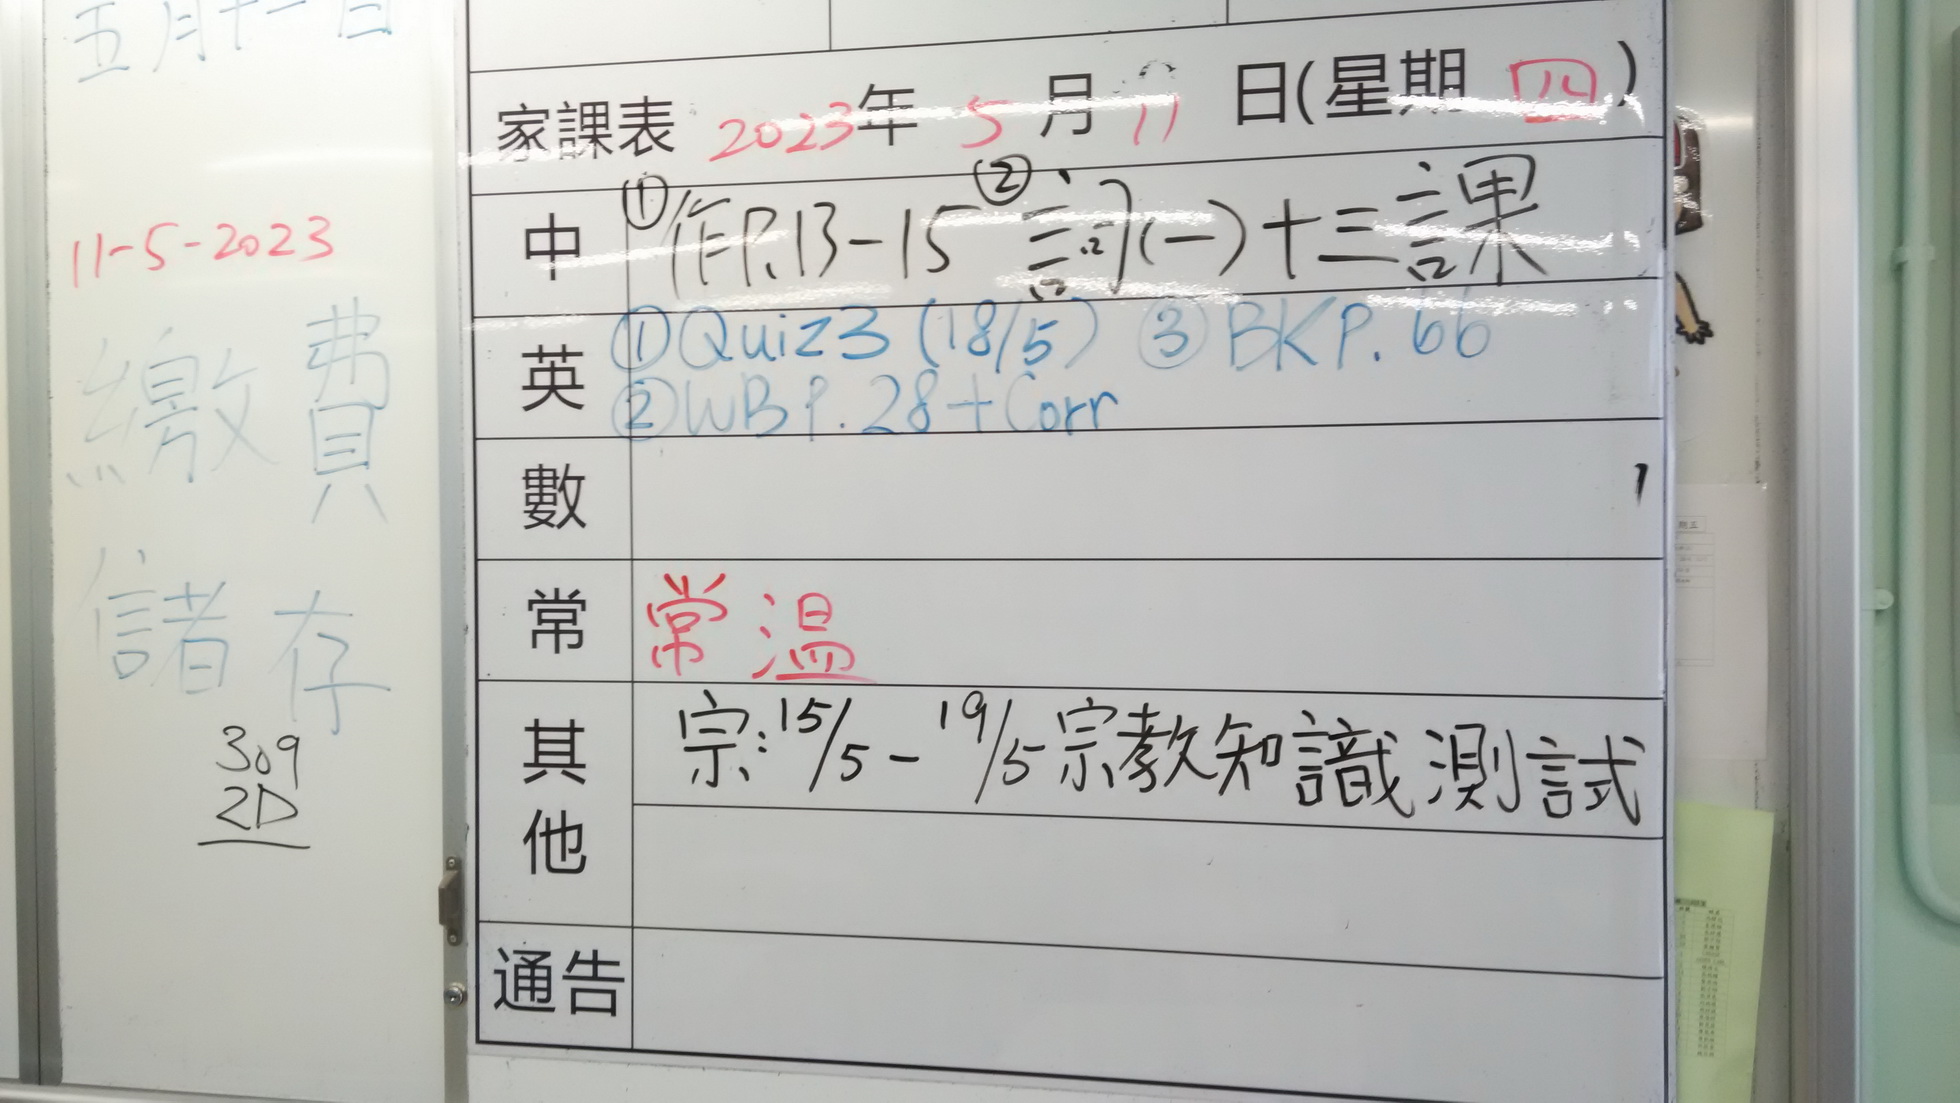 五月十一日
11-5-2023
繳費
儲存
309
2D
家課表 2023年 5月 11日(星期四)
中 ①作P.13-15 ②詞(一)十三課
英 ①Quiz3 (18/5) ③BK P. 66
②WB P. 28 + Corr
數
常 常溫
其他 宗:15/5-19/5宗教知識測試
通告